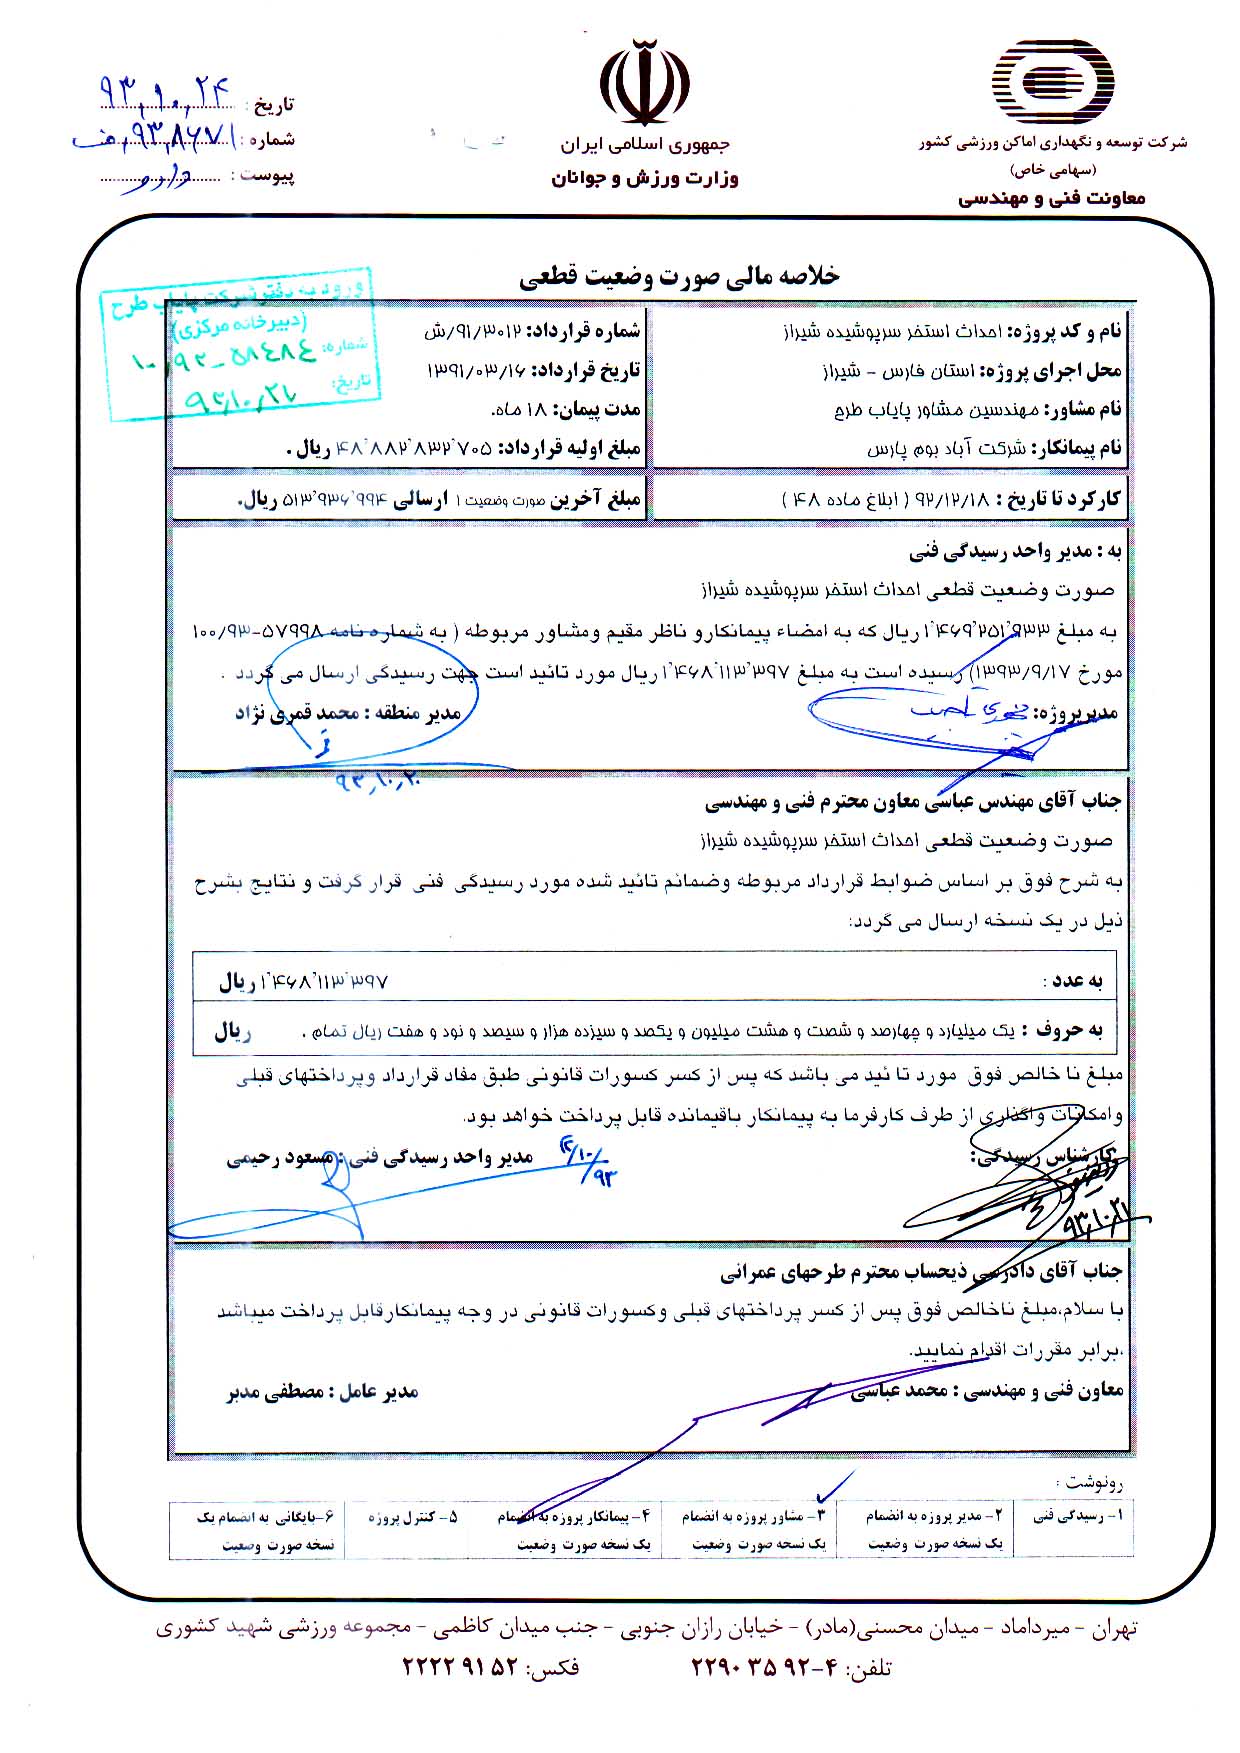 شرکت توسعه و نگهداری اماکن ورزشی کشور
(سهامی خاص)
معاونت فنی و مهندسی
جمهوری اسلامی ایران
وزارت ورزش و جوانان
تاریخ : ۹۳,۱۰,۲۴
شماره :
پیوست : دارد
خلاصه مالی صورت وضعیت قطعی
ورود به دفتر شرکت پایاب طرح
(دبیرخانه مرکزی)
شماره:
تاریخ:
نام و کد پروژه: احداث استخر سرپوشیده شیراز
شماره قرارداد: ۹۱/۳۰۱۲/ش
محل اجرای پروژه: استان فارس - شیراز
تاریخ قرارداد: ۱۳۹۱/۰۳/۱۶
نام مشاور: مهندسین مشاور پایاب طرح
مدت پیمان: ۱۸ ماه.
نام پیمانکار: شرکت آباد بوم پارس
مبلغ اولیه قرارداد: ۴۸٬۸۸۲٬۸۳۲٬۷۰۵ ریال .
کارکرد تا تاریخ : ۹۲/۱۲/۱۸ ( ابلاغ ماده ۴۸ )
مبلغ آخرین صورت وضعیت ۱ ارسالی ۵۱۳٬۹۳۶٬۹۹۴ ریال.
به : مدیر واحد رسیدگی فنی
صورت وضعیت قطعی احداث استخر سرپوشیده شیراز
به مبلغ ۱٬۴۶۹٬۲۵۱٬۹۳۳ ریال که به امضاء پیمانکارو ناظر مقیم ومشاور مربوطه ( به شماره نامه ۵۷۹۹۸-۱۰۰/۹۳
مورخ ۱۳۹۳/۹/۱۷) رسیده است به مبلغ ۱٬۴۶۸٬۱۱۳٬۳۹۷ ریال مورد تائید است جهت رسیدگی ارسال می گردد .
مدیرپروژه:
مدیر منطقه : محمد قمری نژاد
۹۳,۱۰,۲۰
جناب آقای مهندس عباسی معاون محترم فنی و مهندسی
صورت وضعیت قطعی احداث استخر سرپوشیده شیراز
به شرح فوق بر اساس ضوابط قرارداد مربوطه وضمائم تائید شده مورد رسیدگی فنی قرار گرفت و نتایج بشرح
ذیل در یک نسخه ارسال می گردد:
به عدد : ۱٬۴۶۸٬۱۱۳٬۳۹۷ ریال
به حروف : یک میلیارد و چهارصد و شصت و هشت میلیون و یکصد و سیزده هزار و سیصد و نود و هفت ریال تمام . ریال
مبلغ نا خالص فوق مورد تا ئید می باشد که پس از کسر کسورات قانونی طبق مفاد قرارداد وپرداختهای قبلی
وامکانات واگذاری از طرف کارفرما به پیمانکار باقیمانده قابل پرداخت خواهد بود.
کارشناس رسیدگی:
مدیر واحد رسیدگی فنی : مسعود رحیمی
۹۳,۱۰,۲۱
جناب آقای دادرسی ذیحساب محترم طرحهای عمرانی
با سلام،مبلغ ناخالص فوق پس از کسر پرداختهای قبلی وکسورات قانونی در وجه پیمانکارقابل پرداخت میباشد
،برابر مقررات اقدام نمایید.
معاون فنی و مهندسی : محمد عباسی
مدیر عامل : مصطفی مدبر
رونوشت :
۱- رسیدگی فنی
۲- مدیر پروژه به انضمام
یک نسخه صورت وضعیت
۳- مشاور پروژه به انضمام
یک نسخه صورت وضعیت
۴- پیمانکار پروژه به انضمام
یک نسخه صورت وضعیت
۵- کنترل پروژه
۶-بایگانی به انضمام یک
نسخه صورت وضعیت
تهران - میرداماد - میدان محسنی(مادر) - خیابان رازان جنوبی - جنب میدان کاظمی - مجموعه ورزشی شهید کشوری
تلفن: ۴-۹۲ ۳۵ ۲۲۹۰ فکس: ۵۲ ۹۱ ۲۲۲۲